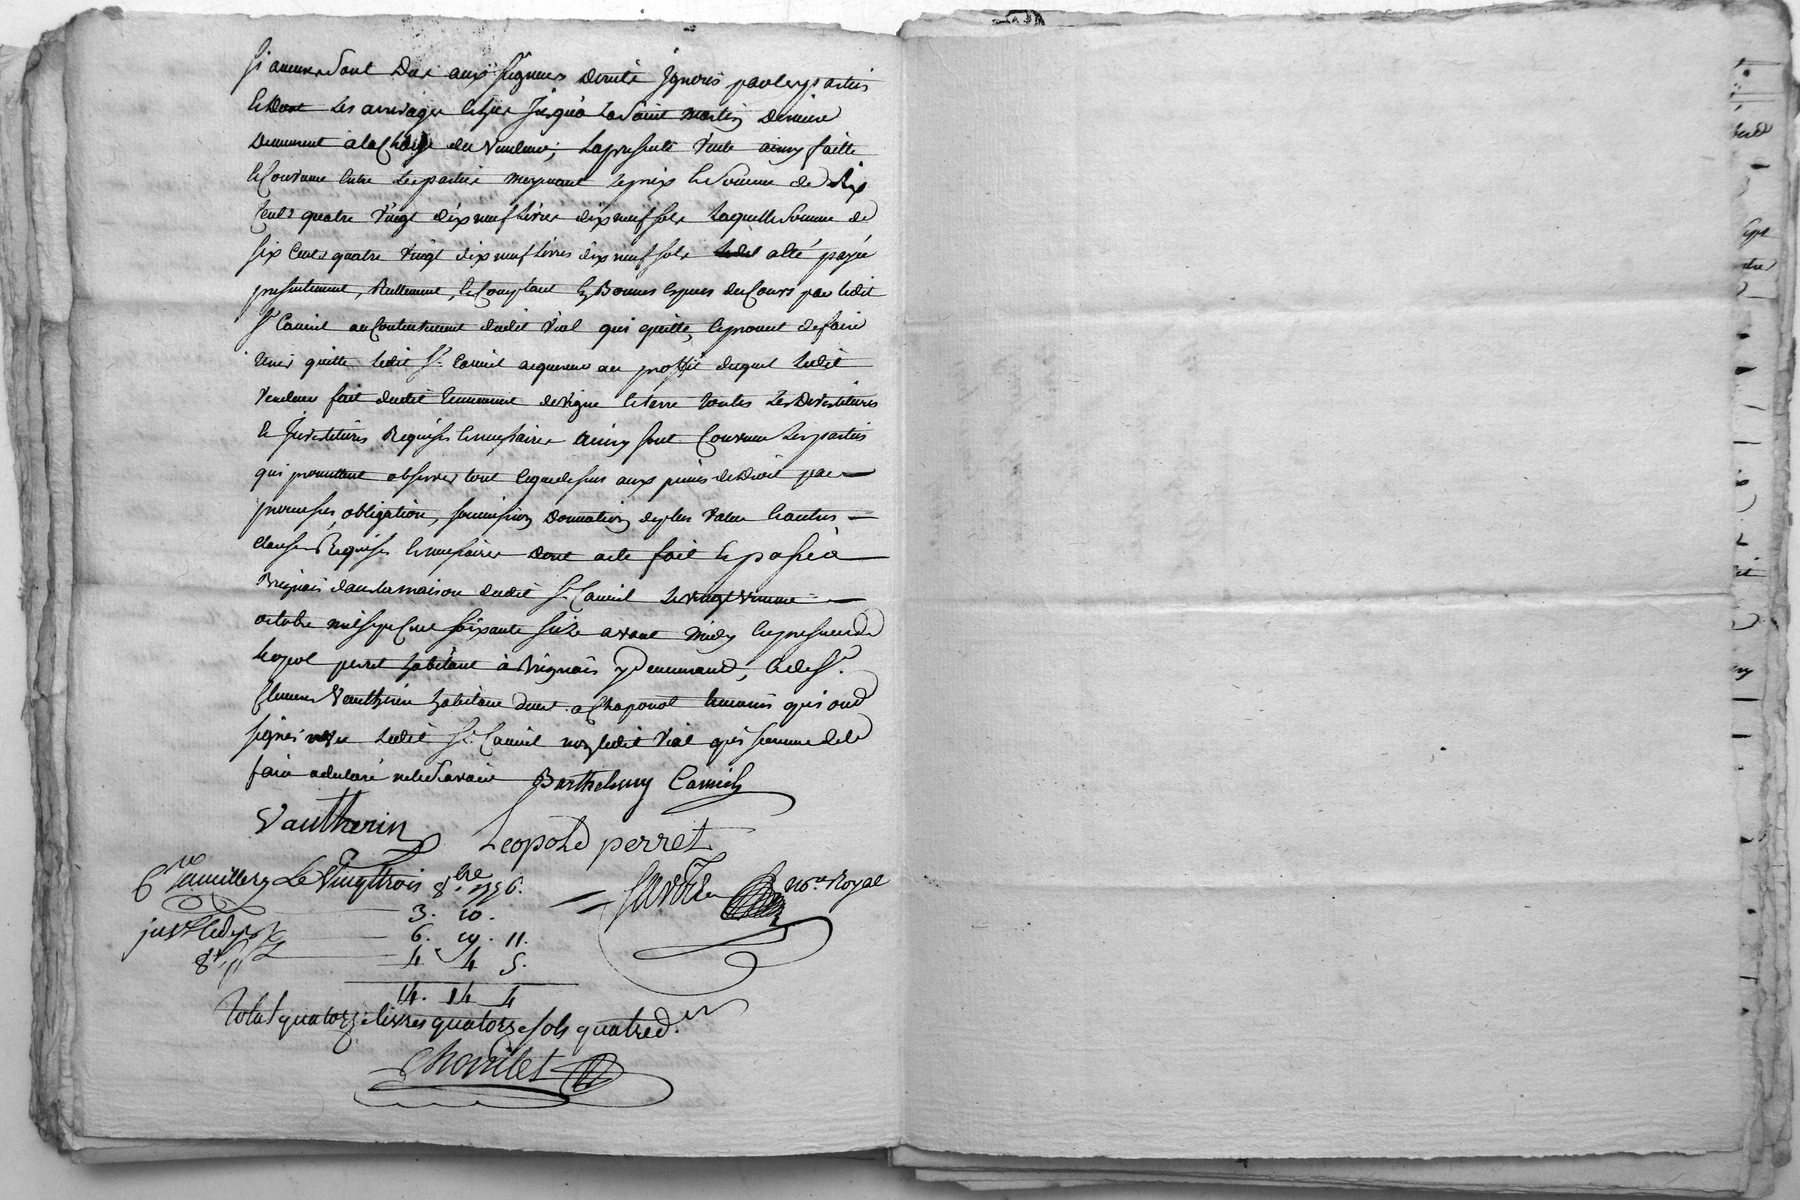 si aucuns sont dus aux seigneurs directs ignorés par les parties
et dont les arrerages et lises jusqu'à la saint martin derniere
demeurent à la charge du vendeur; la presente vente ainsy faitte
et convenue entre les parties moyenant le prix et somme de six
cents quatre vingt dix neuf livres dix neuf sols laquelle somme de
six cents quatre vingt dix neuf livres dix neuf sols a été payée
presentement, réellement, et comptant en bonnes especes du cours par ledit
Sr. Camiel au contentement dudit vial qui quitte, et promet de faire
tenir quitte ledit Sr. Camiel acquereur au proffit duquel ledit
vendeur fait dudit tenement de vigne et terre toutes les devestitures
et investitures requises et necessaires ainsy sont convenues les parties
qui promettent observer tout ce que dessus aux peines de droit par
promesses, obligation, soumission donnation de plus value et autres
clauses requises et necessaires dont acte fait et passé à
Brignais dans la maison dudit Sr. Camiel le
octobre mil sept cent soixante seize avant midy en presence de
leopol perret habitant à Brignais y demeurant, et de Sr.
Clement Vautherin habitant dem.t a Chaponot temoins qui ont
signés avec ledit Sr. Camiel non ledit vial qui somme de le
faire a declaré ne le savoir Barthelemy Camiel
Vautherin Leopold perret
Cé. Le Vingt trois 8bre 1776. no.re Royal
3. 10.
6. 19. 11.
4. 4 5.
14. 14 4
Total quatorze livres quatorze sols quatre d.
Chomilet